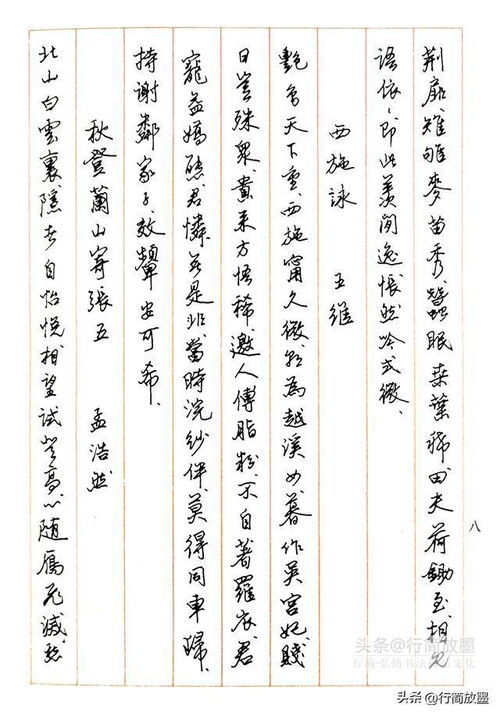 荆扉雉雊麥苗秀蠶眠桑葉稀田夫荷鋤至相見
語依、即此羨閒逸悵然吟式微、
西施詠 王維
艷色天下重、西施甯久微、朝為越溪女暮作吳宮妃賤
日豈殊衆貴來方悟稀、邀人傅脂粉、不自著羅衣君
寵益嬌態君憐無是非、當時浣紗伴、莫得同車歸、
持謝鄰家子效顰安可希、
秋登蘭山寄張五 孟浩然
北山白雲裏隱者自怡悅相望試登高心随雁飛滅愁
八
头条@行简放墨
行简·弘扬书法 文化
头条 @行简放墨